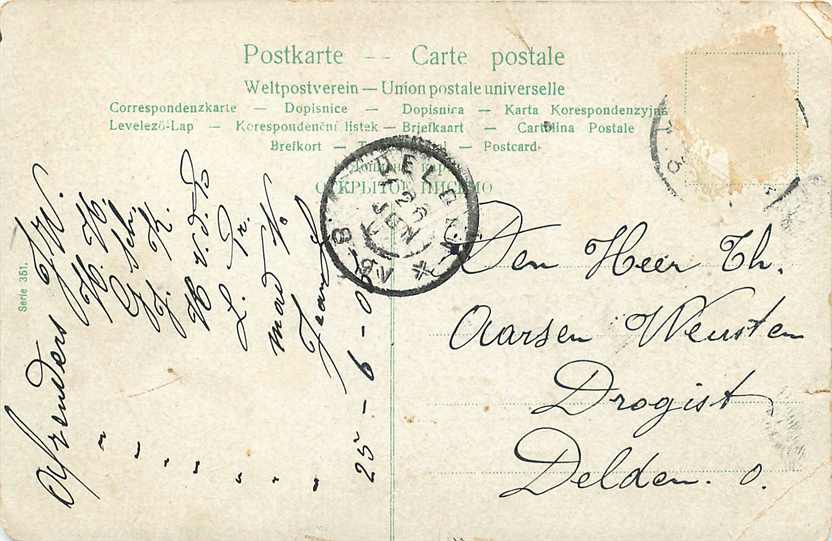 Postkarte — Carte postale
Weltpostverein — Union postale universelle
Correspondenzkarte — Dopisnice — Dopisnica — Karta Korespondenzyjna
Levelező-Lap — Korespondenční listek — Briefkaart — Cartolina Postale
Brefkort — — Postcard
ОТКРЫТОЕ ПИСЬМО
DELDEN
Den Heer Th.
Aarsen Weusten
Drogist
Delden. O.
Afzenders J. W.
" H. H.
" G. Sch.
" J. K.
" H v. d. B
" L. Pr.
" mad N
25 - 6 - 0
Serie 351.